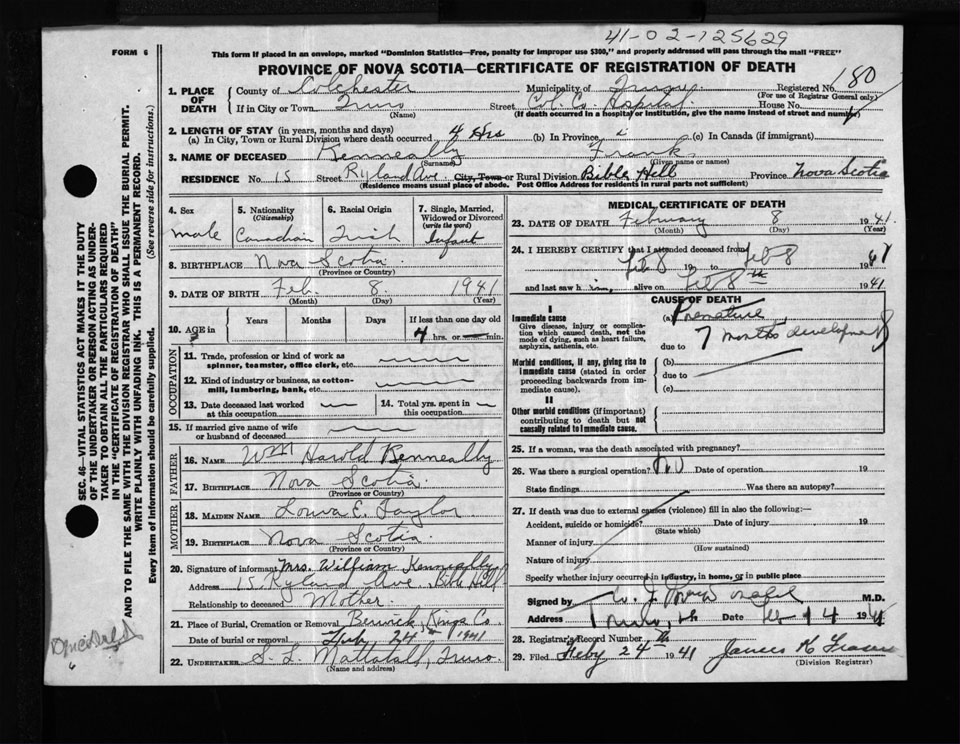 41-02-125629
FORM 6
This form if placed in an envelope, marked "Dominion Statistics—Free, penalty for improper use $300," and properly addressed will pass through the mail "FREE"
PROVINCE OF NOVA SCOTIA—CERTIFICATE OF REGISTRATION OF DEATH
180
1. PLACE OF DEATH
County of Colchester
Municipality of Truro
Registered No.
(For use of Registrar General only)
If in City or Town Truro
(Name)
Street Col. Co. Hospital
House No.
(If death occurred in a hospital or institution, give the name instead of street and number)
2. LENGTH OF STAY (in years, months and days)
(a) In City, Town or Rural Division where death occurred 4 Hrs (b) In Province (c) In Canada (if immigrant)
3. NAME OF DECEASED Kenneally Frank
(Surname) (Given name or names)
RESIDENCE No. 15 Street Ryland Ave. City, Town or Rural Division Bible Hill Province Nova Scotia
(Residence means usual place of abode. Post Office Address for residents in rural parts not sufficient)
4. Sex
male
5. Nationality
(Citizenship)
Canadian
6. Racial Origin
Irish
7. Single, Married, Widowed or Divorced
(write the word)
Infant
8. BIRTHPLACE Nova Scotia
(Province or Country)
9. DATE OF BIRTH Feb. 8. 1941
(Month) (Day) (Year)
10. AGE
Years Months Days If less than one day old
4 hrs. or min.
OCCUPATION
11. Trade, profession or kind of work as spinner, teamster, office clerk, etc.
12. Kind of industry or business, as cotton-mill, lumbering, bank, etc.
13. Date deceased last worked at this occupation
14. Total yrs. spent in this occupation
15. If married give name of wife or husband of deceased
FATHER
16. NAME Wm Harold Kenneally
17. BIRTHPLACE Nova Scotia
(Province or Country)
MOTHER
18. MAIDEN NAME E. Taylor
19. BIRTHPLACE Nova Scotia
(Province or Country)
20. Signature of informant Mrs. William Kenneally
Address 15 Ryland Ave. Bible Hill
Relationship to deceased Mother
21. Place of Burial, Cremation or Removal Berwick, Kings Co.
Date of burial or removal 24th 1941
22. UNDERTAKER S. L. Mattatall, Truro.
(Name and address)
MEDICAL CERTIFICATE OF DEATH
23. DATE OF DEATH February 8 1941.
(Month) (Day) (Year)
24. I HEREBY CERTIFY that I attended deceased from
Feb 8 19 to Feb 8 1941
and last saw him, alive on Feb 8th 1941
CAUSE OF DEATH
I
Immediate cause
Give disease, injury or complication which caused death, not the mode of dying, such as heart failure, asphyxia, asthenia, etc.
(a) Premature,
due to 7 months development
Morbid conditions, if any, giving rise to immediate cause (stated in order proceeding backwards from immediate cause).
(b)
due to
(c)
II
Other morbid conditions (if important) contributing to death but not causally related to immediate cause.
25. If a woman, was the death associated with pregnancy?
26. Was there a surgical operation? No Date of operation 19
State findings Was there an autopsy?
27. If death was due to external causes (violence) fill in also the following:—
Accident, suicide or homicide? Date of injury 19
(State which)
Manner of injury
(How sustained)
Nature of injury
Specify whether injury occurred in industry, in home, or in public place
Signed by M.D.
Address Truro, Date Feb 14 1941
28. Registrar's Record Number
29. Filed Feby 24th 1941 James K Fraser
(Division Registrar)
SEC. 46—VITAL STATISTICS ACT MAKES IT THE DUTY
OF THE UNDERTAKER OR PERSON ACTING AS UNDER-
TAKER TO OBTAIN ALL THE PARTICULARS REQUIRED
IN THE "CERTIFICATE OF REGISTRATION OF DEATH"
AND TO FILE THE SAME WITH THE DIVISION REGISTRAR WHO SHALL ISSUE THE BURIAL PERMIT.
WRITE PLAINLY WITH UNFADING INK. THIS IS A PERMANENT RECORD.
Every item of information should be carefully supplied.
(See reverse side for instructions.)